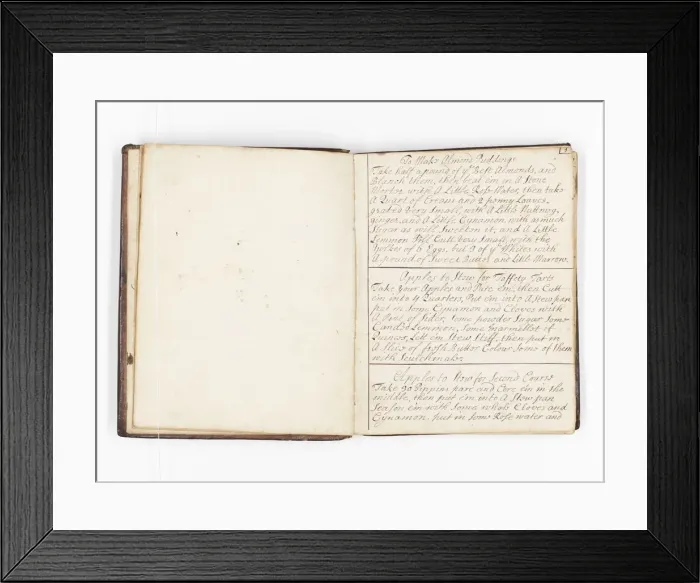 To Make Almond Puddings
Take half a pound of ye Best Almonds, and
Blanch them, then beat em in A Stone
Morter with A Little Rose Water, then take
A Quart of Cream and 2 penny Loaves
grated Very Small, with A Little Nuttmeg,
ginger, and A Little Cynamon with as much
Sugar as will Sweeten it, and A Little
Lemmon Pill Cutt very Small, with the
Yolkes of 8 Eggs, but 3 of ye Whites with
A pound of Sweet Butter and Little Marrow.
Apples to Stew for Taffety Tarts
Take Your Apples and Pare em, then Cutt
em into 4 Quarters, Put em into A Stew pan
put in Some Cynamon and Cloves with
A of Sider, Some powder Sugar Some
Candid Lemmon, Some Marmellet of
Quinces, Lett em Stew Stiff, then put in
A Slice of fresh Butter Colour Some of them
with
Apples to Stew for Second Course
Take 20 Pippins pare and Core em in the
middle, then put em into A Stew pan
Season em with Some whole Cloves and
Cynamon, put in Some Rose water and